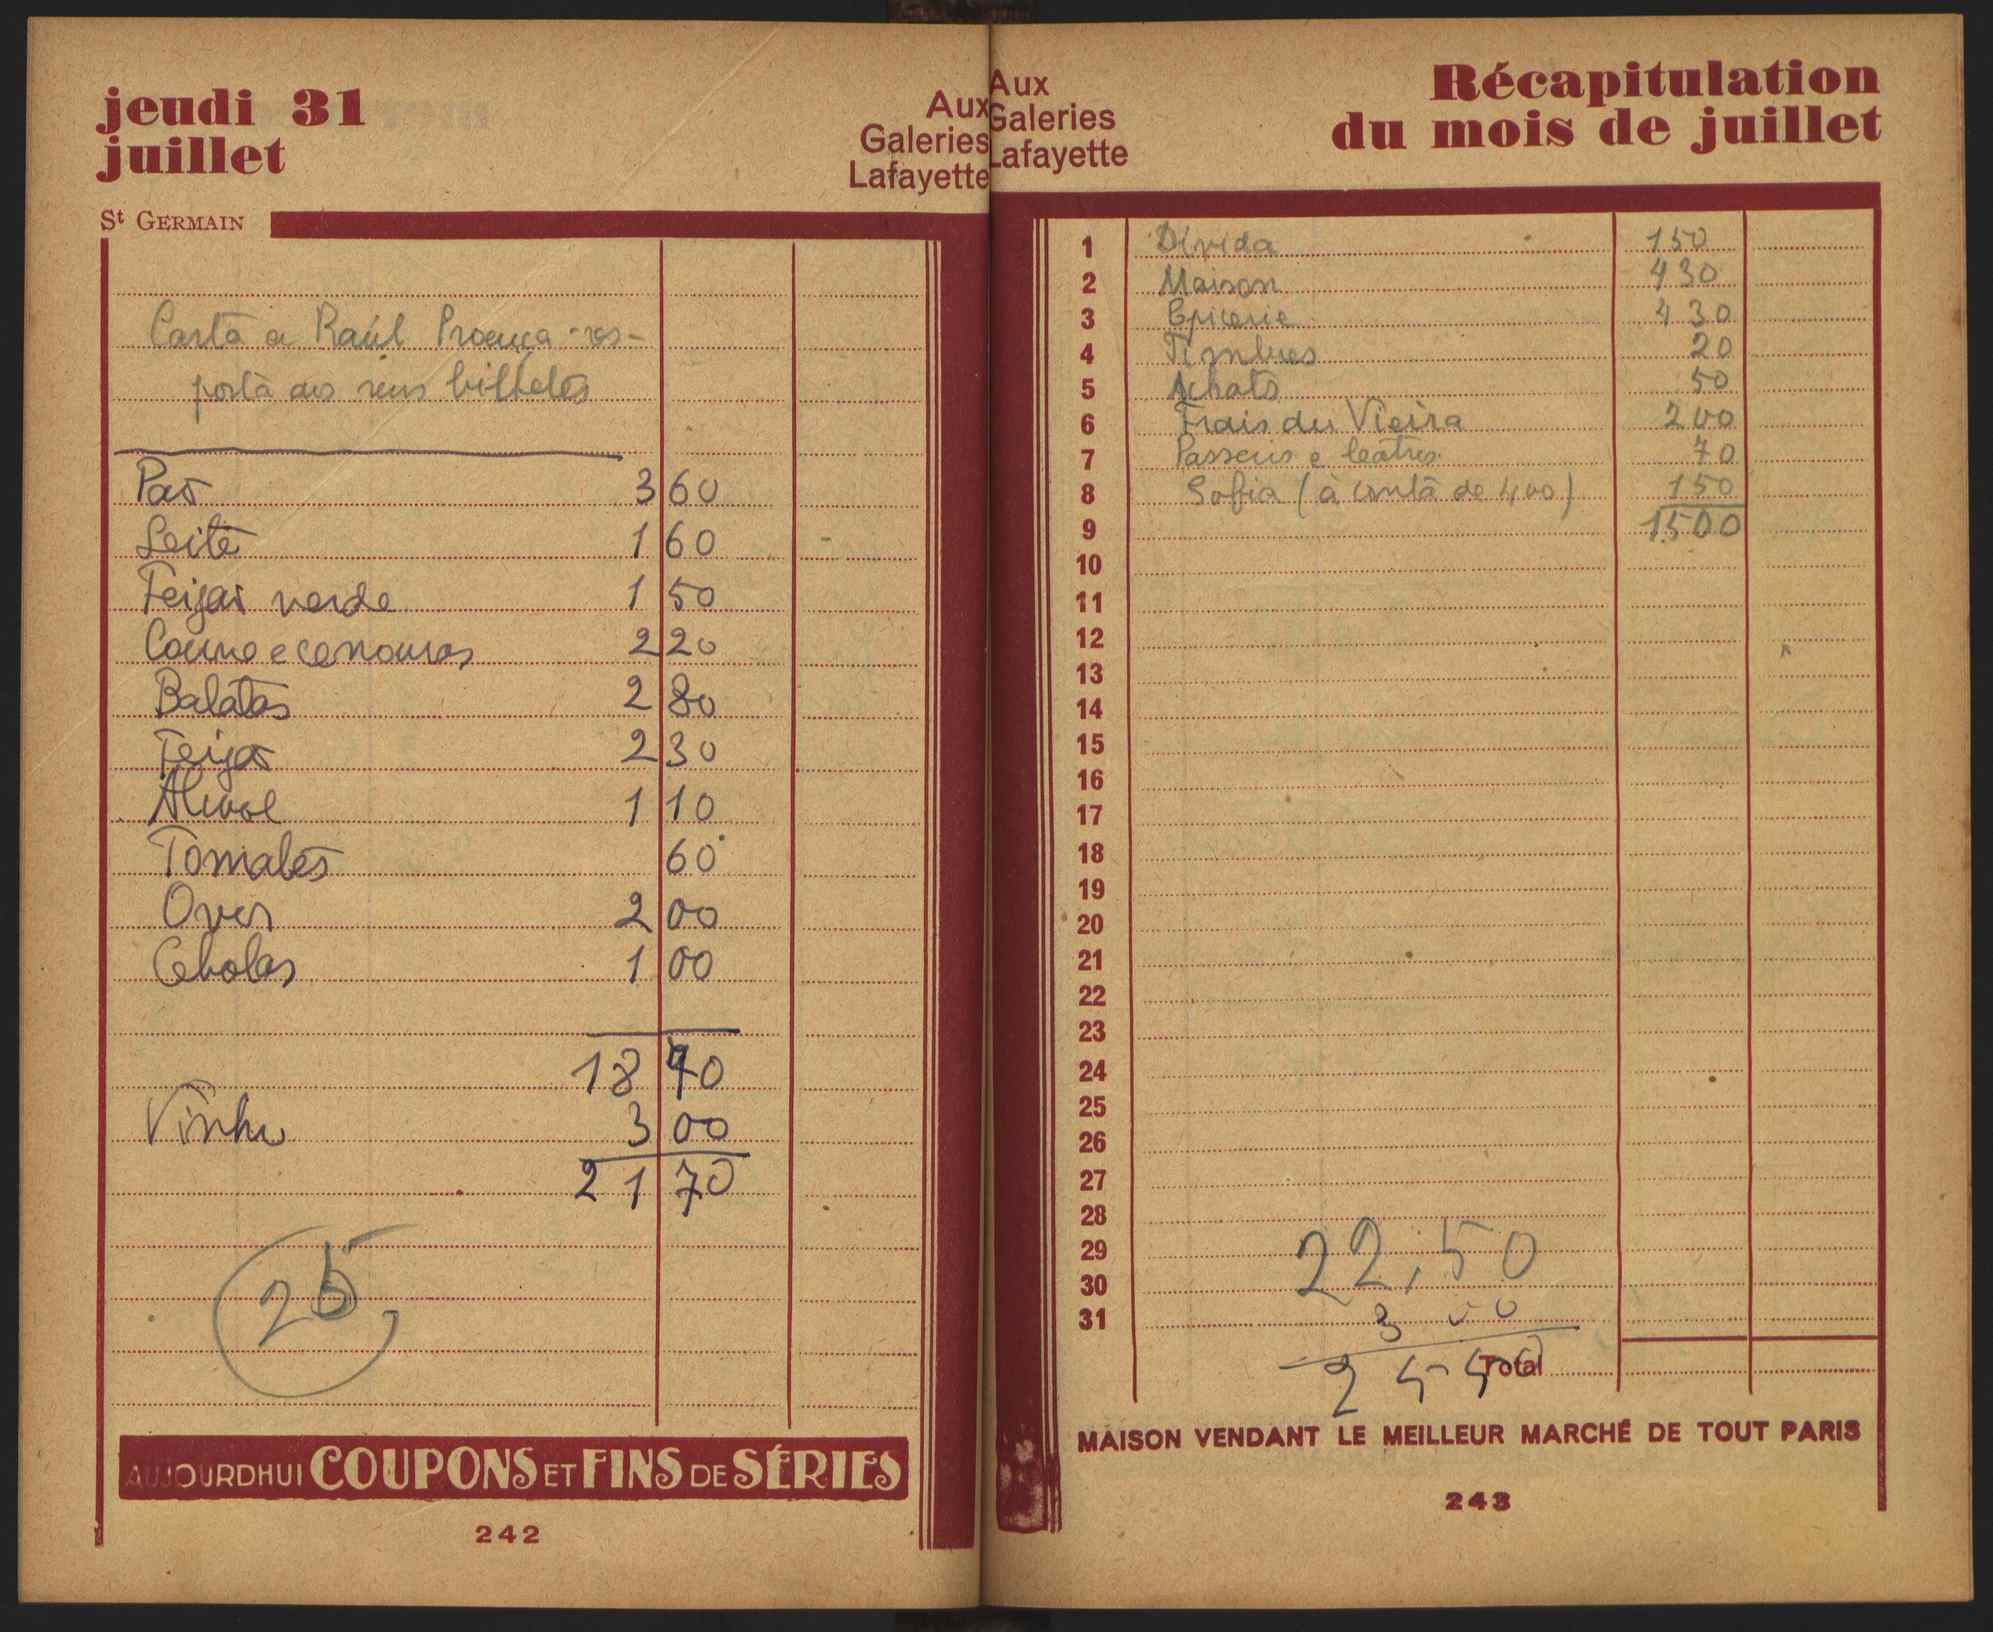 jeudi 31
juillet
Aux
Galeries
Lafayette
St GERMAIN
Carta a Raúl Proença - res-
posta aos seus bilhetes
Pão 3 60
Leite 1 60
Feijão verde 1 50
Couve e cenouras 2 20
Batatas 2 80
Feijão 2 30
1 10
Tomates 60
Ovos 2 00
Cebolas 1 00
18 70
Vinho 3 00
21 70
25
AUJOURDHUI COUPONS ET FINS DE SÉRIES
242
Aux
Galeries
Lafayette
Récapitulation
du mois de juillet
1 Dívida 150
2 Maison 430
3 Epicerie 430
4 Timbres 20
5 Achats 50
6 Frais du Vieira 200
7 Passeios e teatros 70
8 Sofia (à conta de 400) 150
9 1500
10
11
12
13
14
15
16
17
18
19
20
21
22
23
24
25
26
27
28
29 22,50
30
31 3 00
Total
MAISON VENDANT LE MEILLEUR MARCHÉ DE TOUT PARIS
243